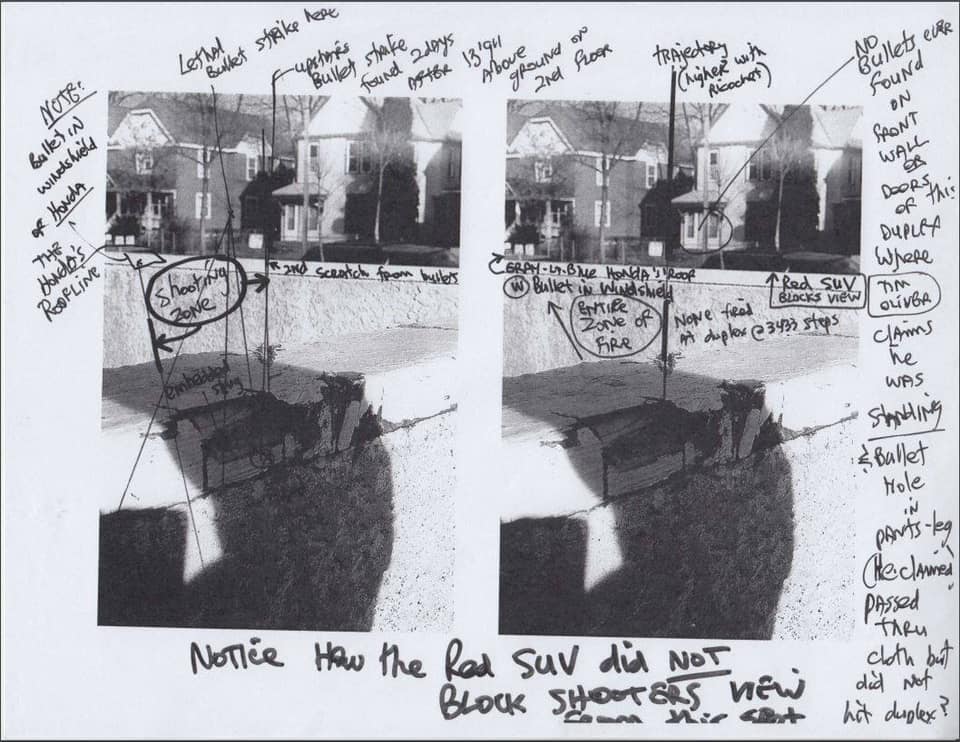 NOTE:
Bullet in
windshield
of Honda
THE
Honda's
Roofline
Lethal
Bullet strike here
upstairs
Bullet strike
found 2 days
AFTER 13'9 1/1
Above
ground on
2nd floor
Trajectory
(higher with
ricochet)
NO
Bullets ever
found
on
front
wall
or
Doors
of this
Duplex
Where
Tim
Oliver
claims
he
was
standing
& Bullet
Hole
in
pants-leg
(He claimed
passed
thru
cloth but
did not
hit duplex?
Shooting
Zone
2nd scratch from bullets
embedded
slug
Gray-Lt. Blue Honda's roof
(W) Bullet in Windshield
Entire
Zone of
Fire
None fired
at duplex @ 3433 steps
Red SUV
Blocks View
Notice How the Red SUV did NOT
BLOCK SHOOTERS VIEW
from this spot